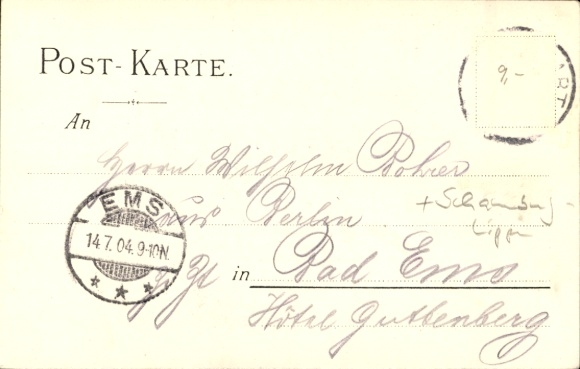 POST-KARTE.
ART
9,-
An
Herrn Wilhelm Rohrer
aus Berlin
+ Schaumburg-
Lippe
EMS
14.7.04.9-10N.
z. Zt in Bad Ems
Hôtel Guttenberg